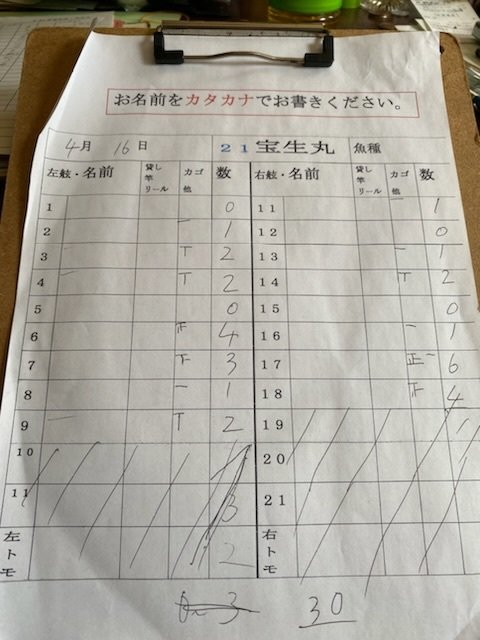 お名前をカタカナでお書きください。
4月 16日 21 宝生丸 魚種
左舷・名前 貸し竿リール カゴ他 数 右舷・名前 貸し竿リール カゴ他 数
1 0 11 一 1
2 一 1 12 0
3 T 2 13 一 1
4 T 2 14 T 2
5 0 15 0
6 正 4 16 一 1
7 下 3 17 正一 6
8 一 1 18 正 4
9 T 2 19
10 20
11 3 21
左トモ 2 右トモ
3 30